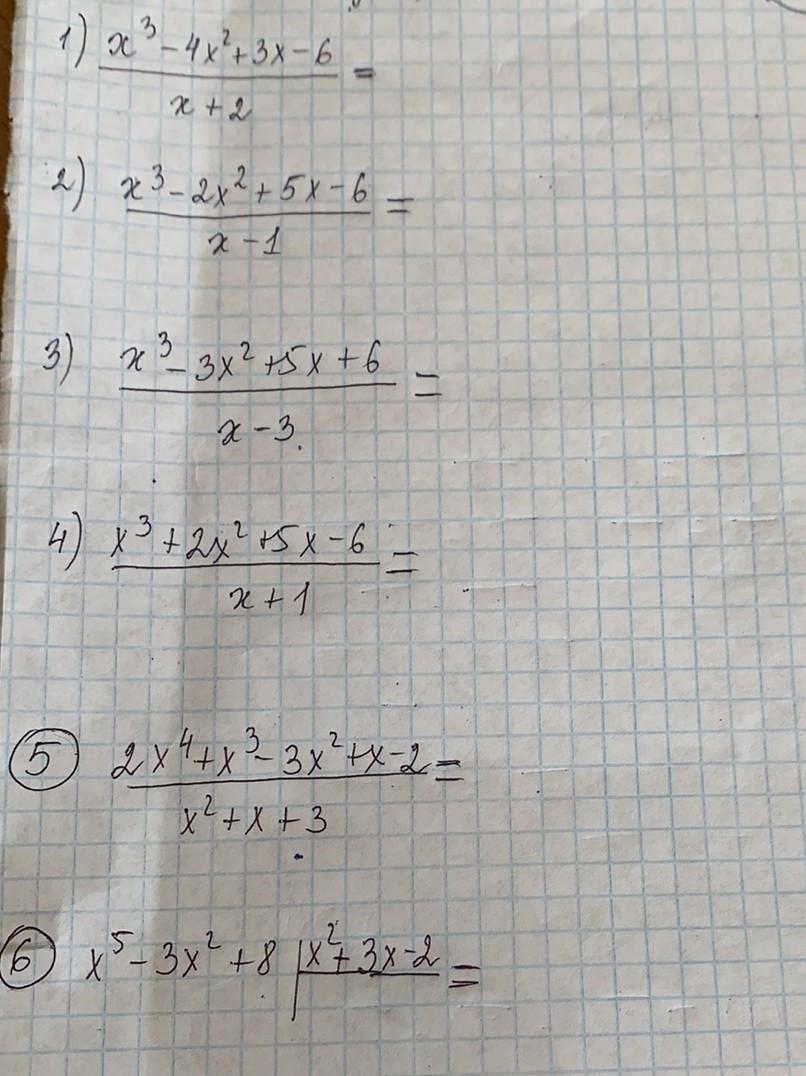 1) x³ - 4x² + 3x - 6 =
x + 2
2) x³ - 2x² + 5x - 6 =
x - 1
3) x³ - 3x² + 5x + 6 =
x - 3
4) x³ + 2x² + 5x - 6 =
x + 1
5 2x⁴ + x³ - 3x² + x - 2 =
x² + x + 3
6 x⁵ - 3x² + 8 | x² + 3x - 2 =